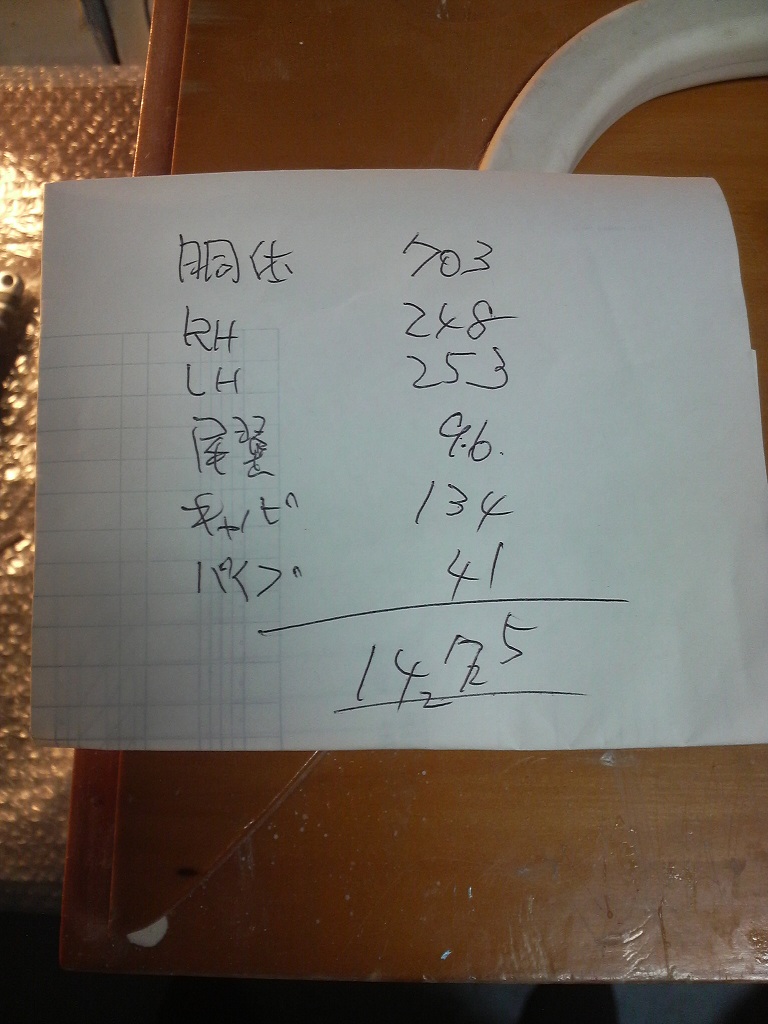 胴体 703
RH 248
LH 253
尾翼 96.
キャノピ 134
パイプ 41
1475